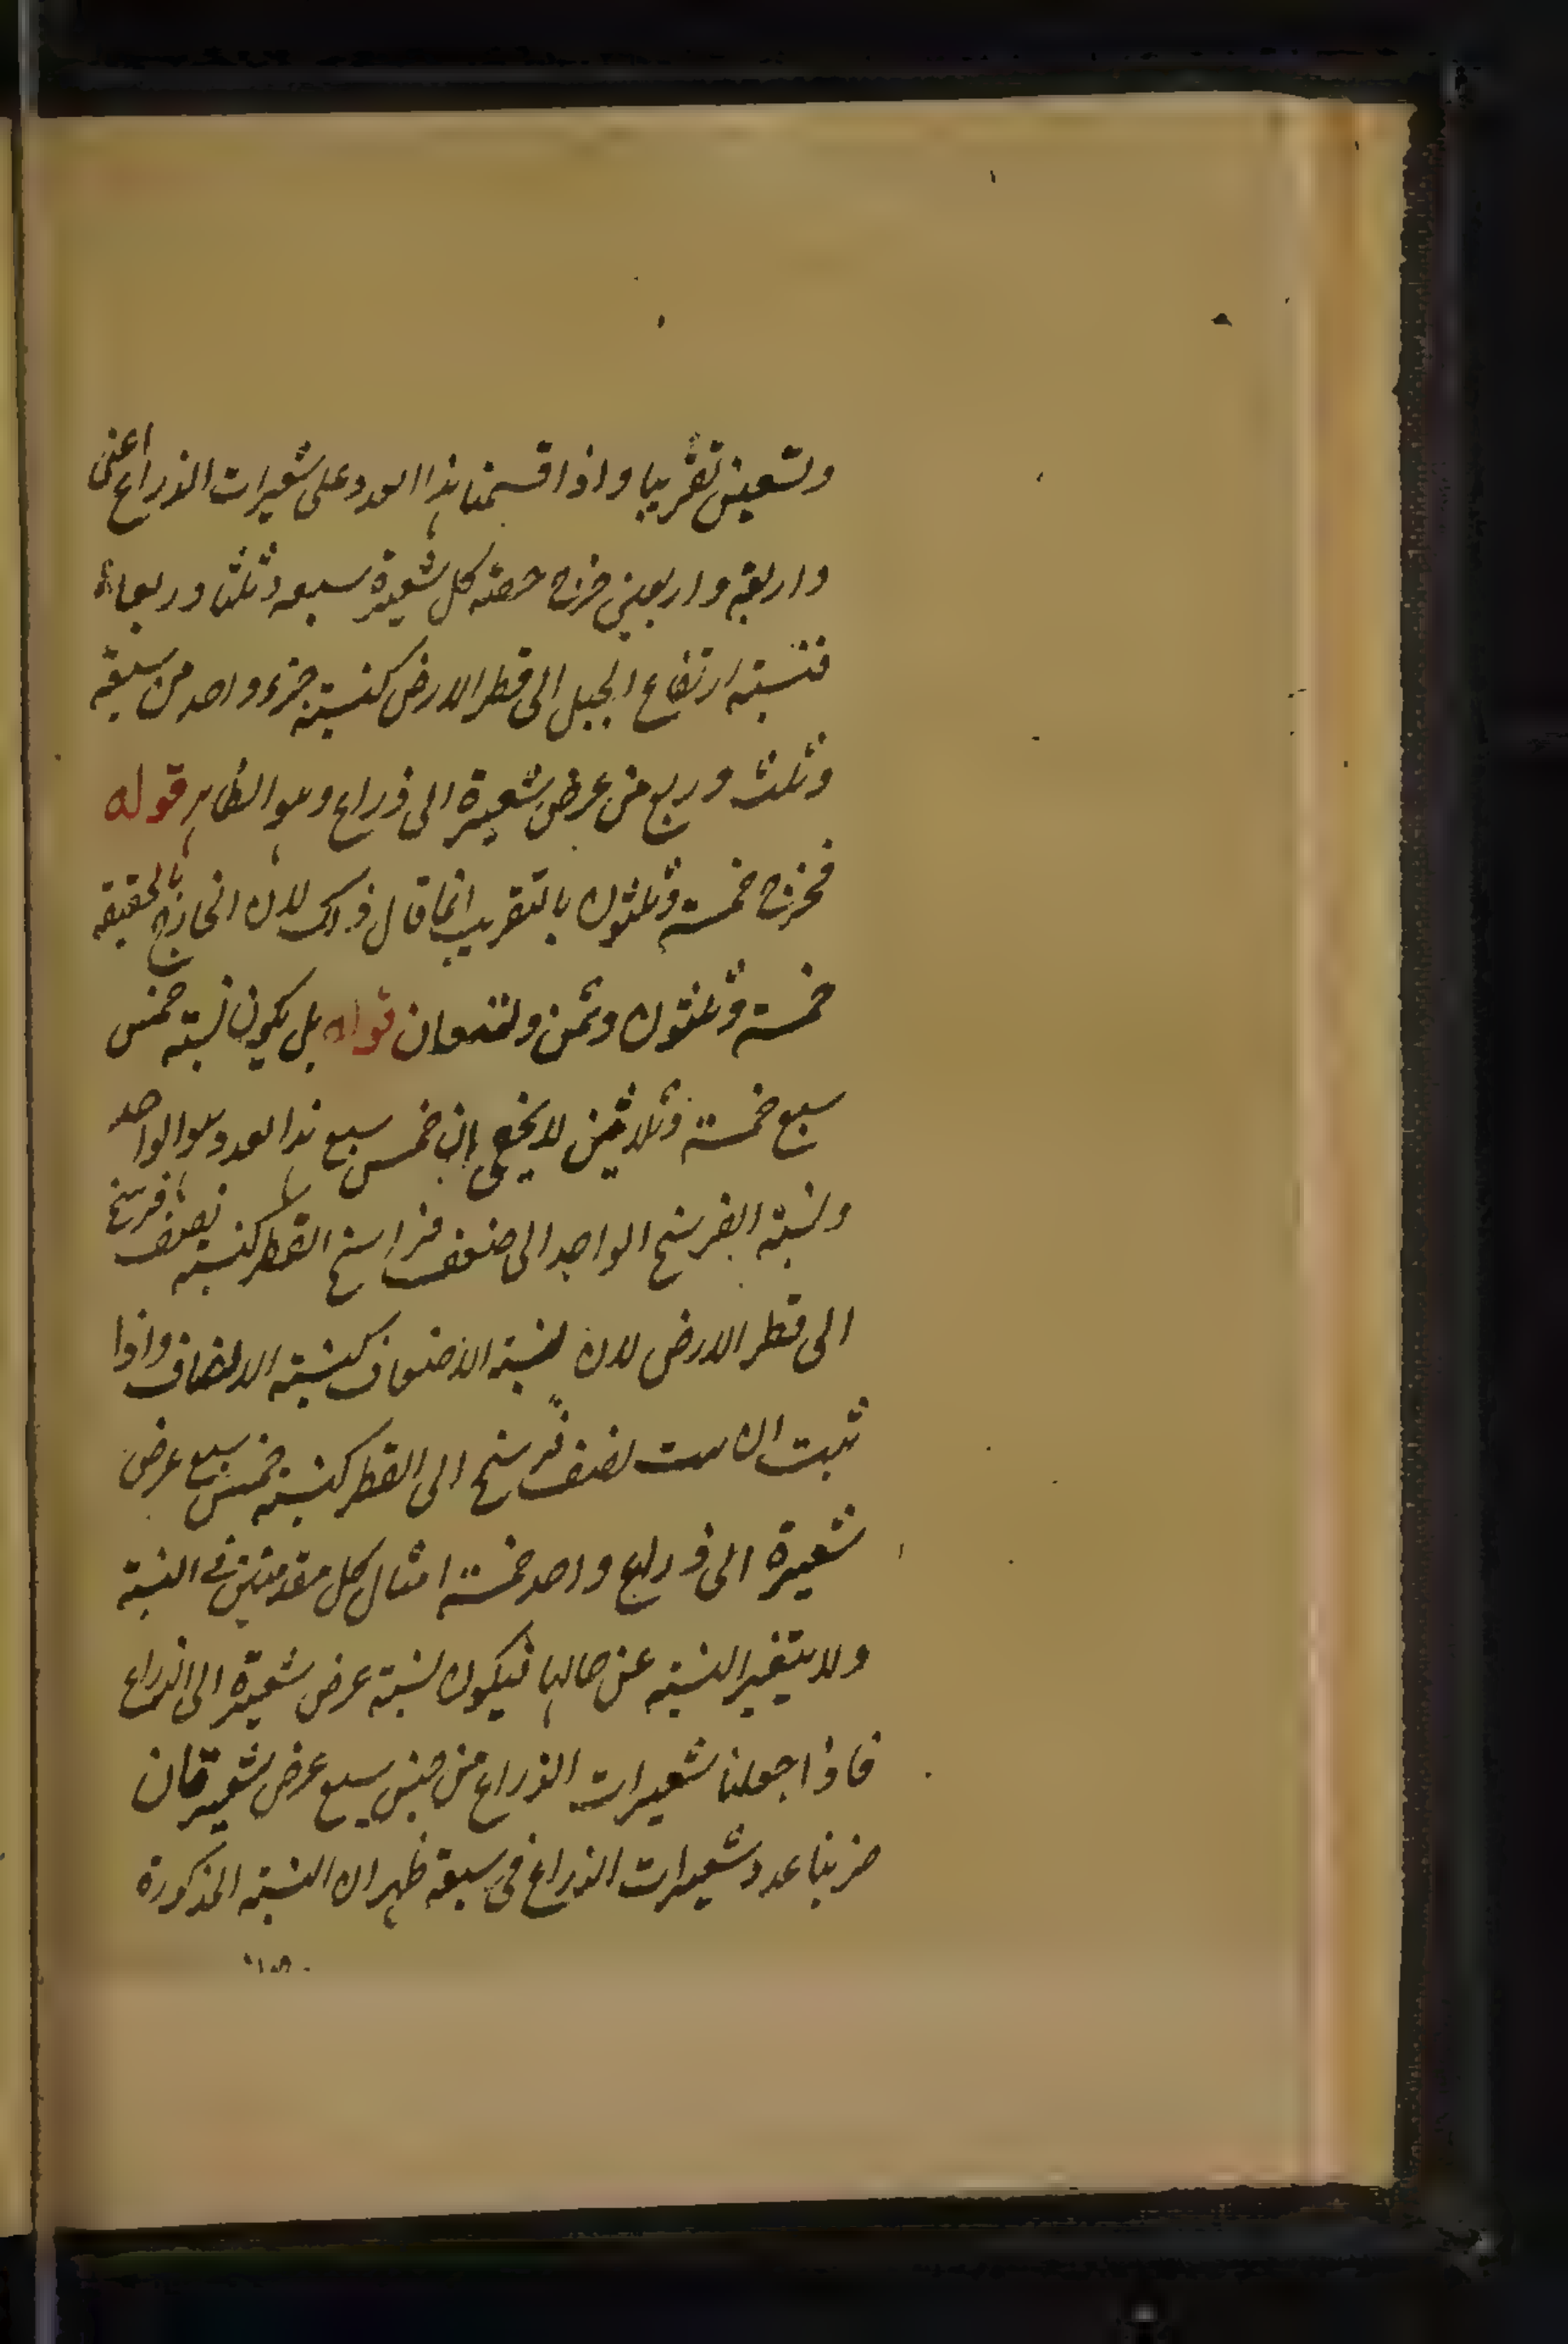 وتسعين تقريبا واذا قسمنا هذا العدد على شعيرات الذراع اعنى
واربعة واربعين خرج حصته كل شعيرة سبعه وثلثا وربعا
فنسبته ارتفاع الجبل الى قطر الارض كنسبته جزء واحد من سبعة
وثلث وربع من عرض شعيرة الى ذراع وهو الظاهر قوله
فخرج خمسة وثلثون بالتقريب انما قال ذلك لان الخارج بالحقيقة
خمسة وثلثون وثمن وتسعان قوله بل يكون نسبته خمس
سبع خمسة وثلاثين لا يخفى ان خمس سبع هذا العدد هو الواحد
ونسبته الفرسخ الواحد الى ضعف فراسخ القطر كنسبته نصف فرسخ
الى قطر الارض لان نسبته الاضعاف كنسبته الانصاف واذا
ثبت ان نصف فرسخ الى القطر كنسبته خمس سبع عرض
شعيرة الى ذراع واحد خمسة امثال كل مقدمتين في النسبة
ولا يتغير النسبته عن حالها فيكون نسبته عرض شعيرة الى الذراع
فاذا جعلنا شعيرات الذراع من جنس سبع عرض شعيرة بان
ضربنا عدد شعيرات الذراع في سبعة ظهر ان النسبة المذكورة